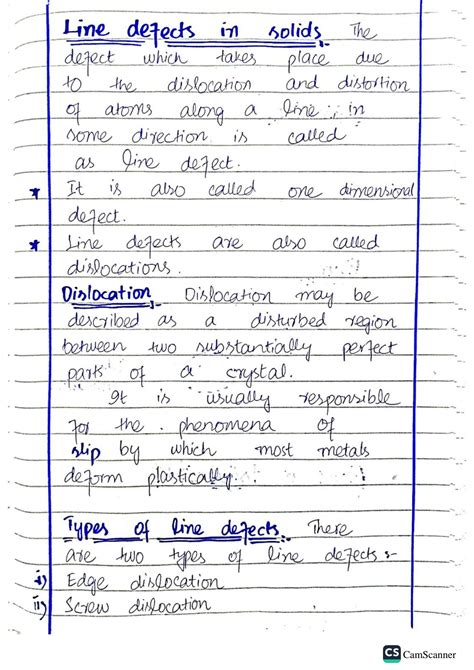 Line defects in solids:- The
defect which takes place due
to the dislocation and distortion
of atoms along a line, in
some direction is called
as line defect.
* It is also called one dimensional
defect.
* Line defects are also called
dislocations.
Dislocation:- Dislocation may be
described as a disturbed region
between two substantially perfect
parts of a crystal.
It is usually responsible
for the phenomena of
slip by which most metals
deform plastically.
Types of line defects:- There
are two types of line defects:-
i) Edge dislocation
ii) Screw dislocation
CS CamScanner